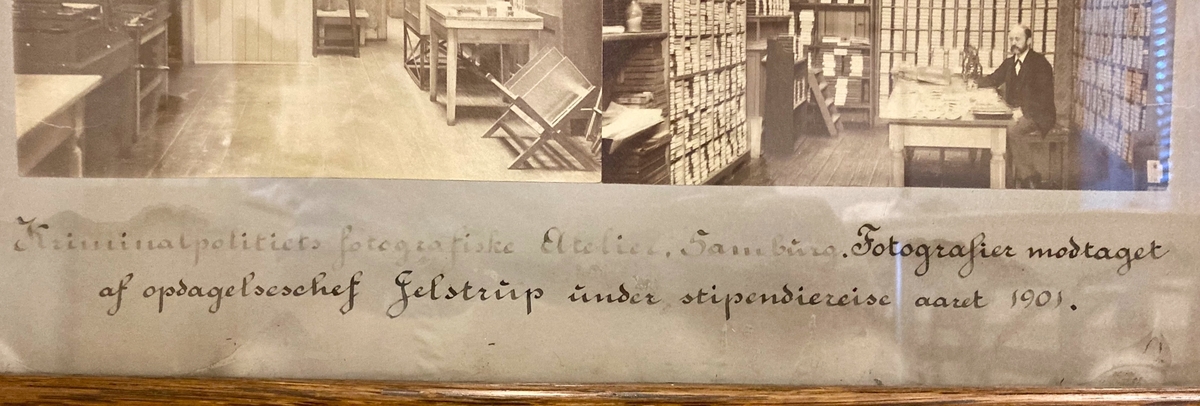 Kriminalpolitiets fotografiske Atelier, Hamburg. Fotografier modtaget
af opdagelseschef Jelstrup under stipendiereise aaret 1901.